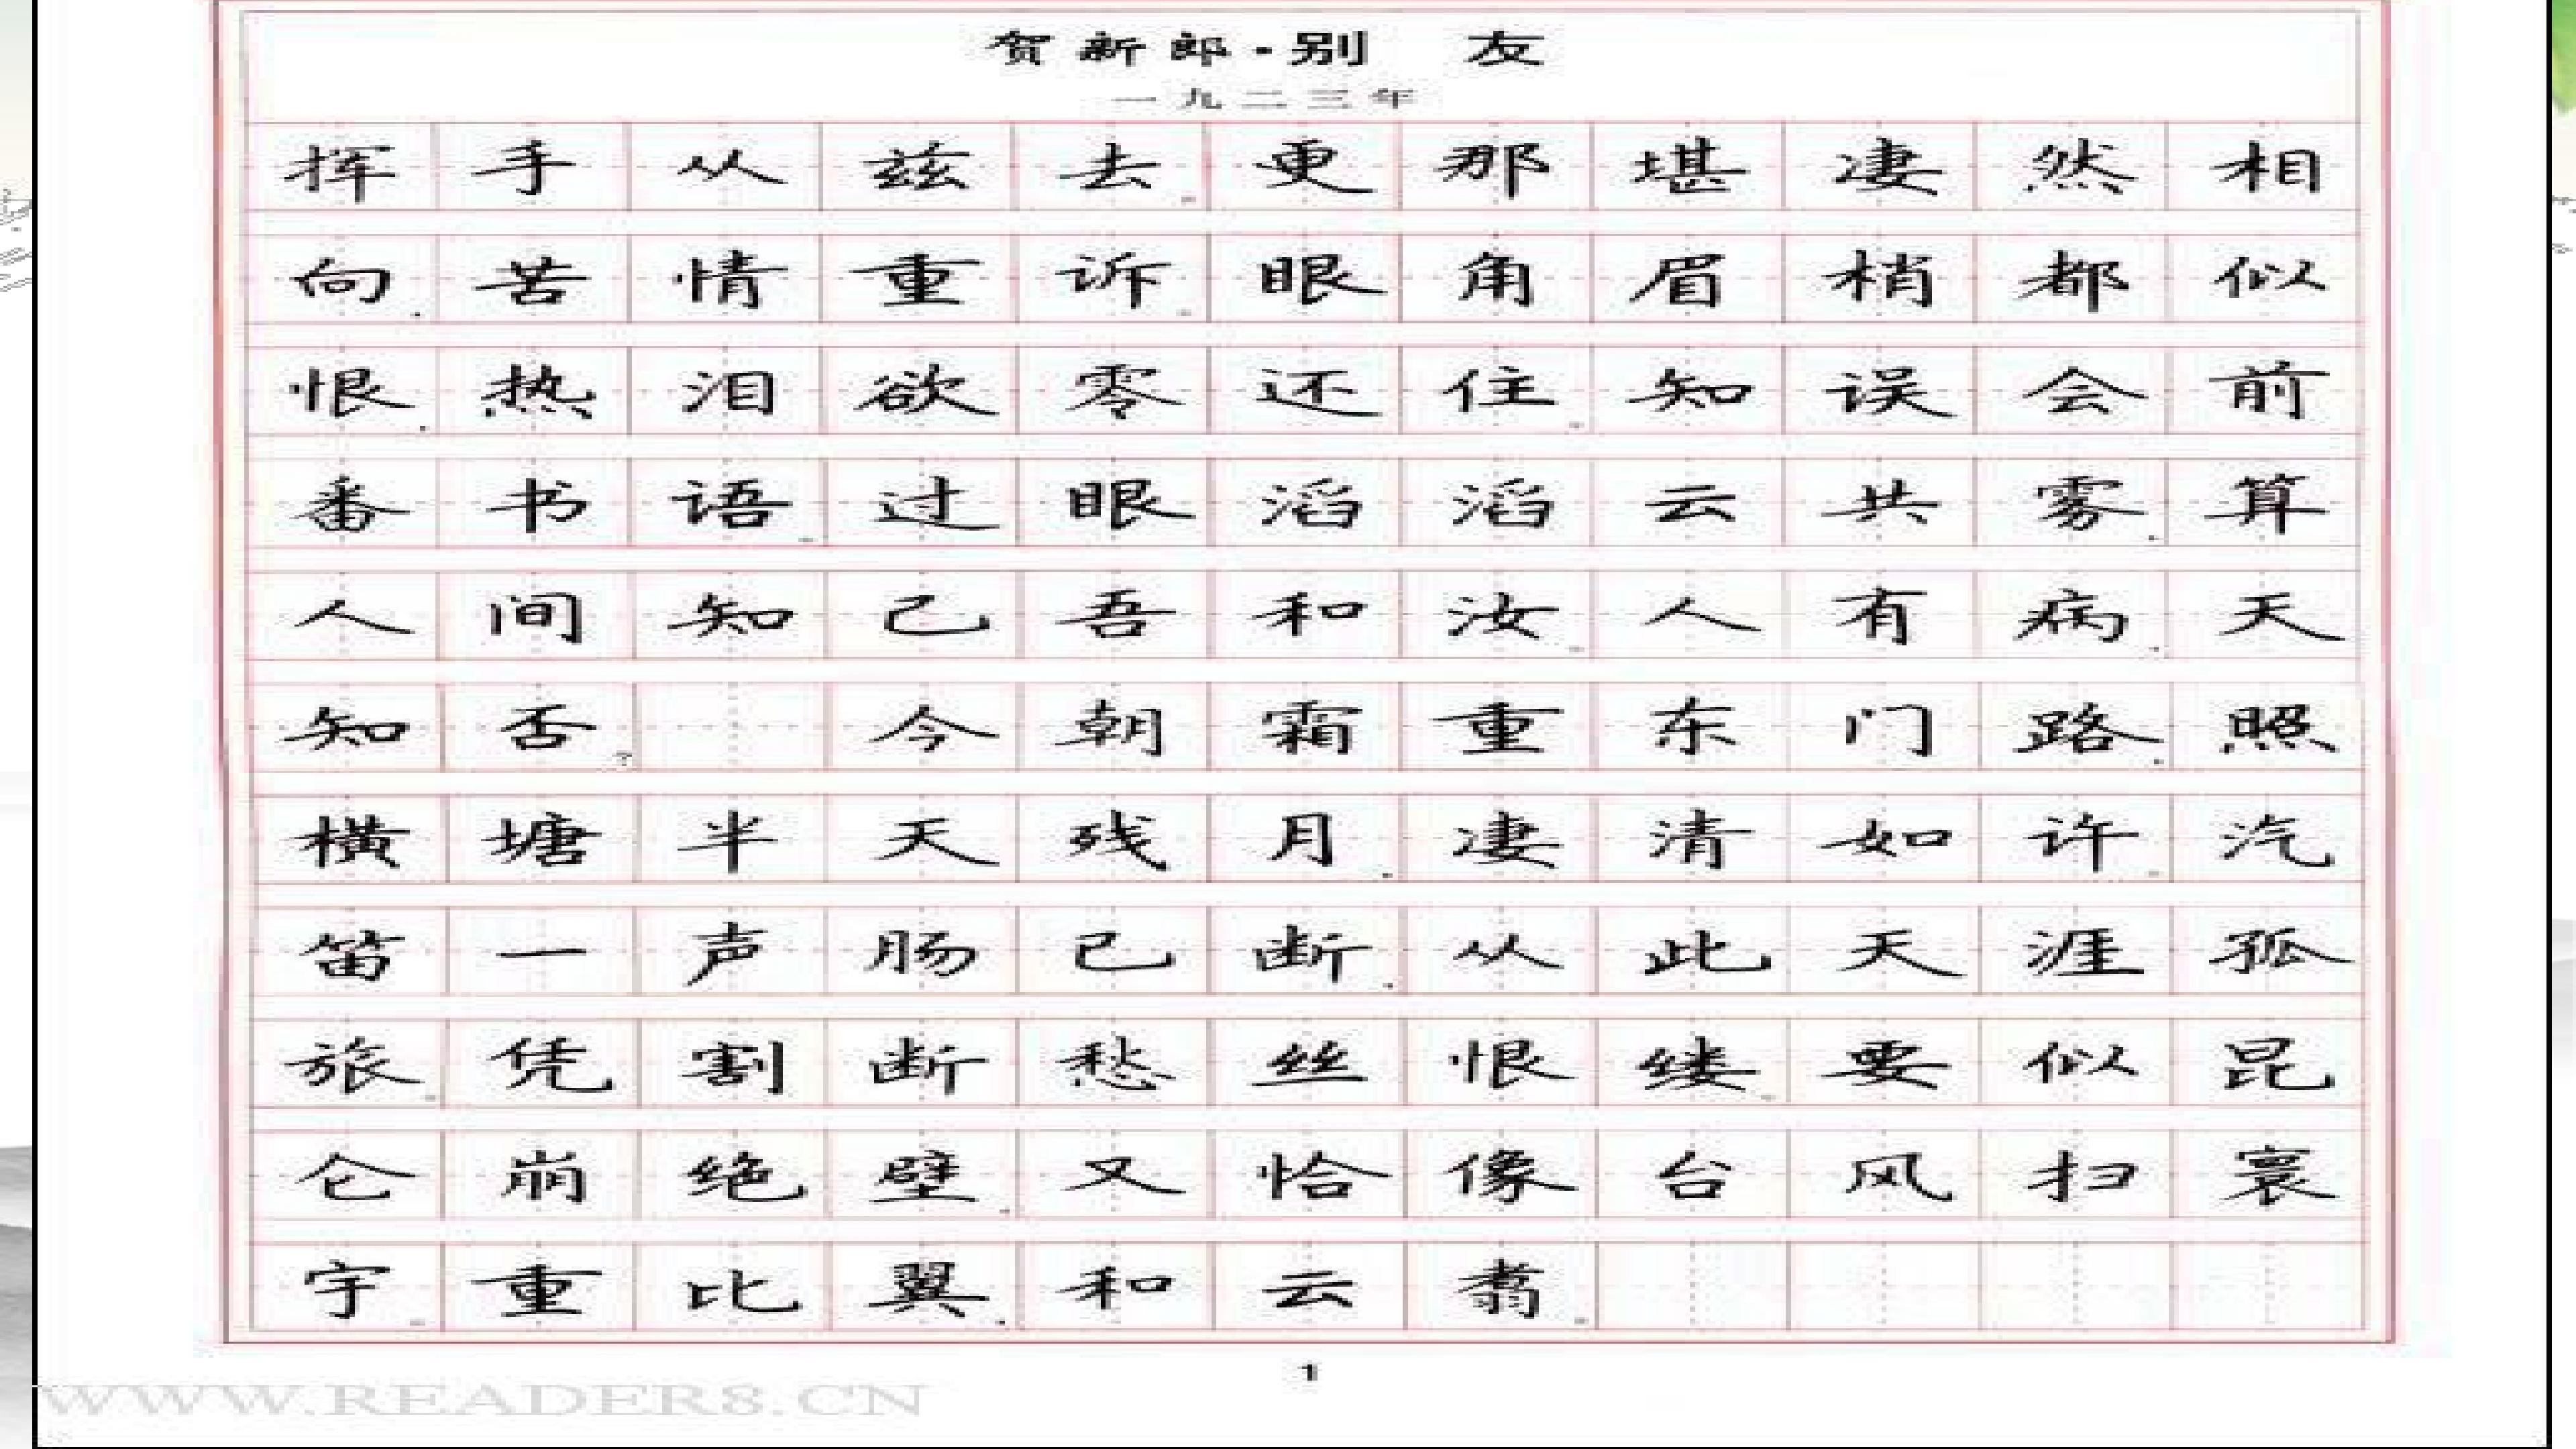 贺新郎·别 友
一九二三年
挥手从兹去。更那堪凄然相
向,苦情重诉。眼角眉梢都似
恨,热泪欲零还住。知误会前
番书语。过眼滔滔云共雾,算
人间知己吾和汝。人有病,天
知否? 今朝霜重东门路,照
横塘半天残月,凄清如许。汽
笛一声肠已断,从此天涯孤
旅。凭割断愁丝恨缕。要似昆
仑崩绝壁,又恰像台风扫寰
宇。重比翼,和云翥。
1
WWW.READER8.CN